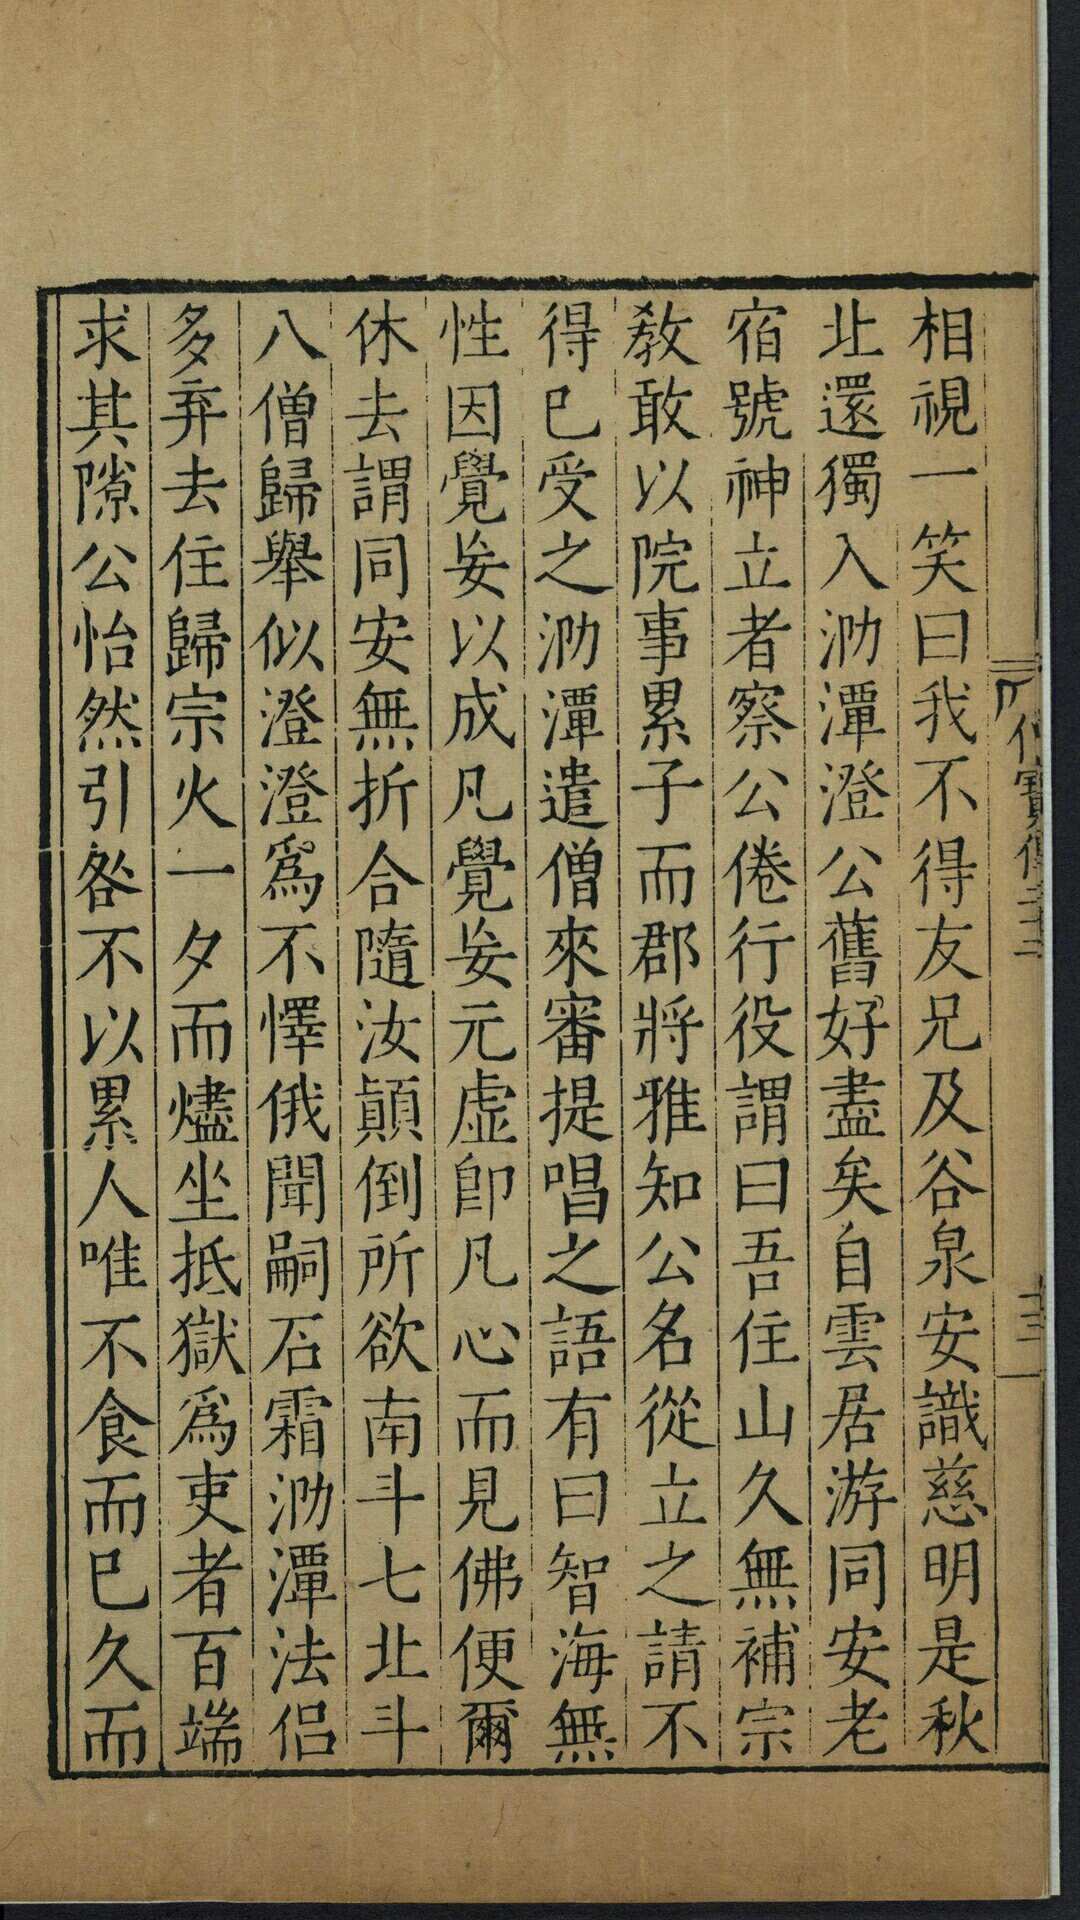 相視一笑曰我不得友兄及谷泉安識慈明是秋
北還獨入泐潭澄公舊好盡矣自雲居游同安老
宿號神立者察公倦行役謂曰吾住山久無補宗
教敢以院事累子而郡將雅知公名從立之請不
得已受之泐潭遣僧來審提唱之語有曰智海無
性因覺妄以成凡覺妄元虛卽凡心而見佛便爾
休去謂同安無折合隨汝顛倒所欲南斗七北斗
八僧歸舉似澄澄爲不懌俄聞嗣石霜泐潭法侶
多弃去住歸宗火一夕而燼坐抵獄爲吏者百端
求其隙公怡然引咎不以累人唯不食而已久而